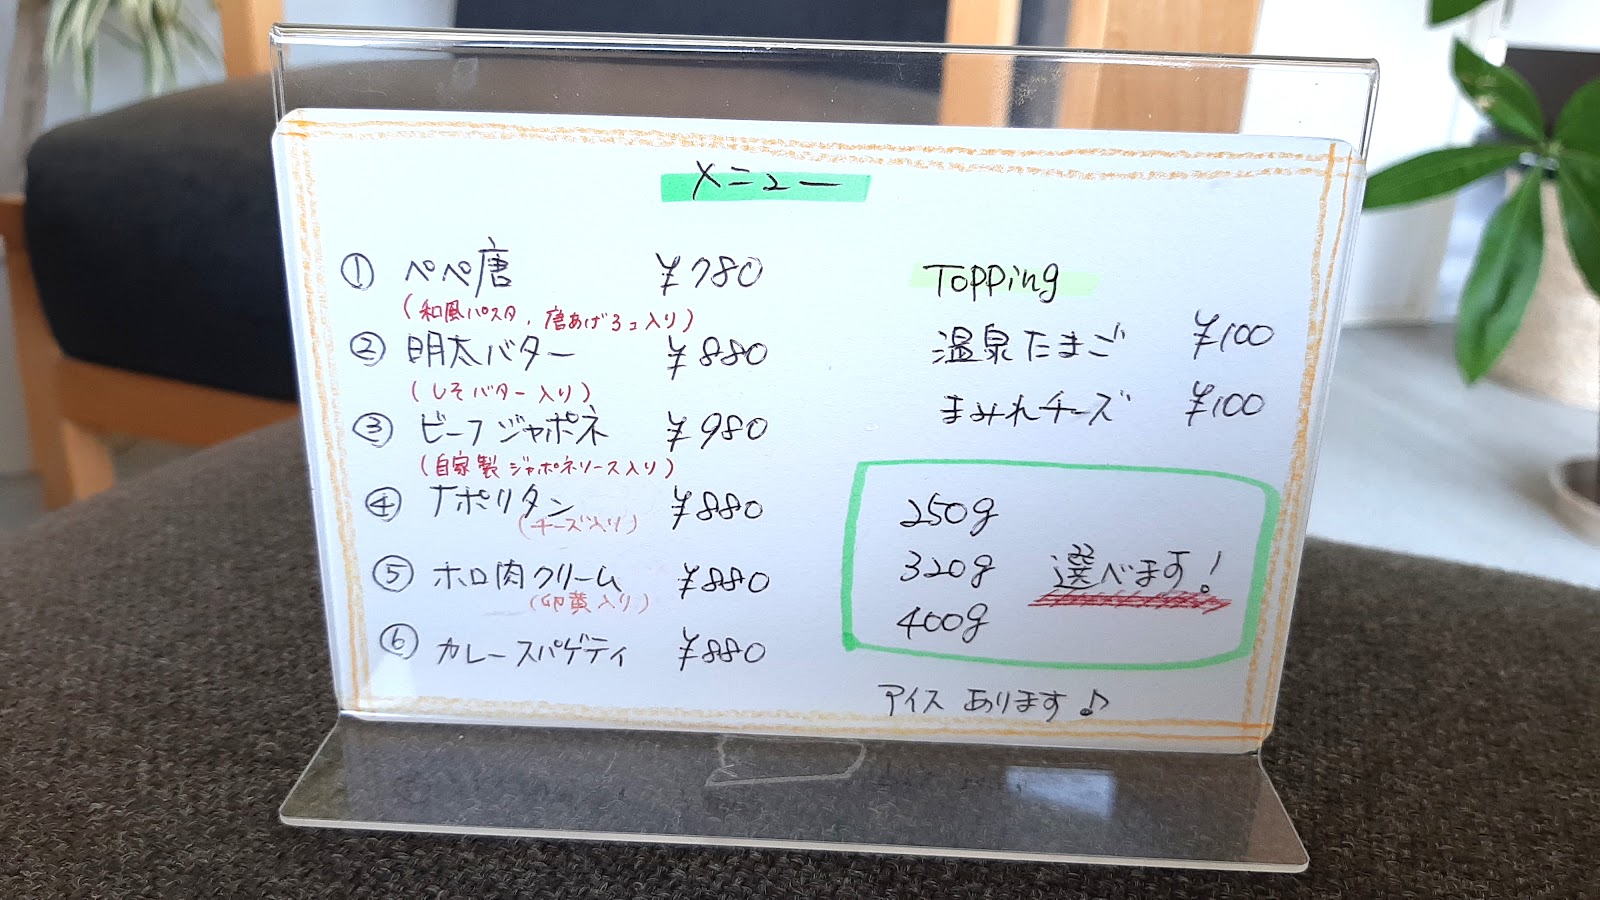 メニュー
① ペペ唐 ¥780
(和風パスタ、唐あげ3コ入り)
② 明太バター ¥880
(しそバター入り)
③ ビーフジャポネ ¥980
(自家製ジャポネソース入り)
④ ナポリタン ¥880
(チーズ入り)
⑤ ホロ肉クリーム ¥880
(卵黄入り)
⑥ カレースパゲティ ¥880
Topping
温泉たまご ¥100
まみれチーズ ¥100
250g
320g 選べます!
400g
アイス あります♪